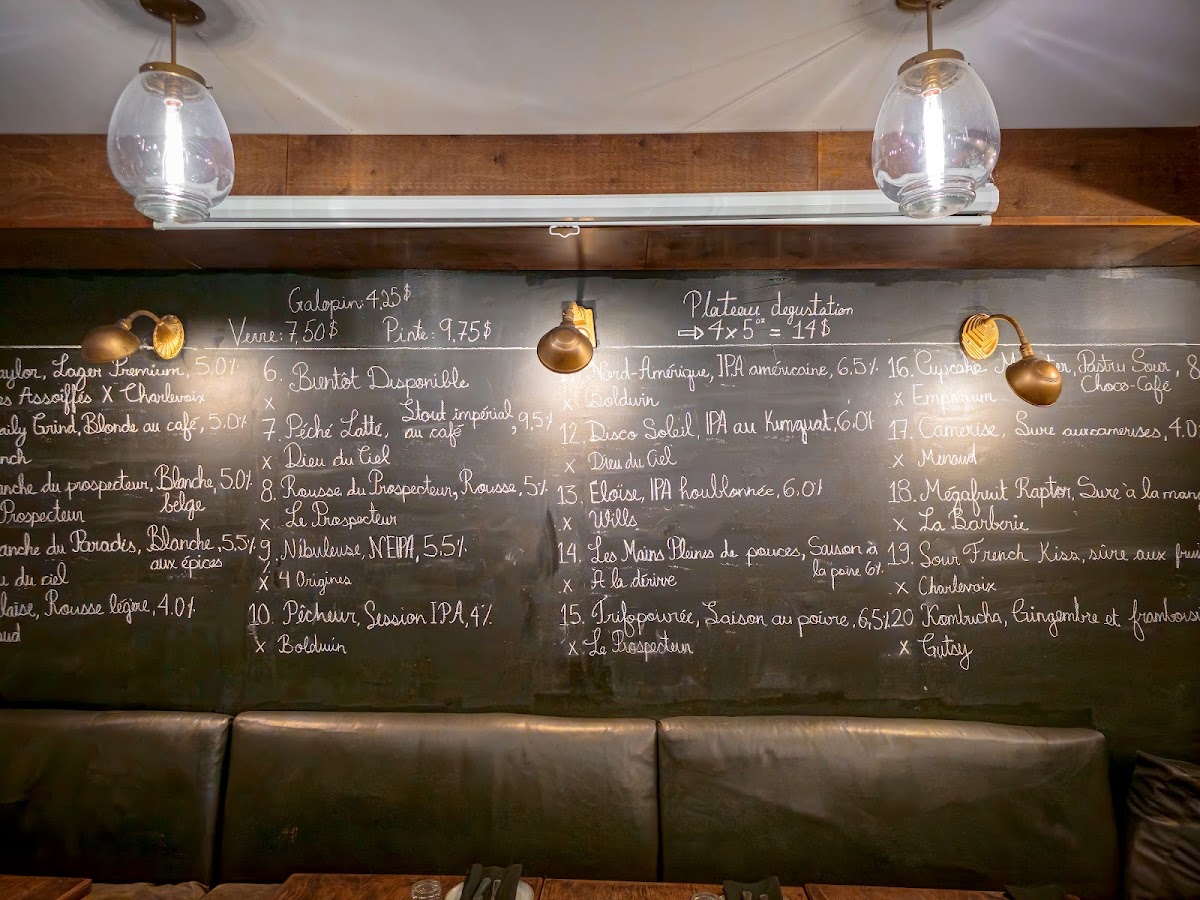 Galopin: 4,25$
Verre: 7,50$ Pinte: 9,75$
Plateau degustation
⇒ 4 x 5oz = 14$
aylor, Lager Premium, 5.0%
es Assoiffés X Charlevoix
aily Grind, Blonde au café, 5,0%
nch
anche du prospecteur, Blanche, 5.0%
belge
Prospecteur
anche du Paradis, Blanche, 5.5%
aux épices
u du ciel
laise, Rousse légère, 4.0%
aud
6. Bientôt Disponible
x
7. Péché Latté, Stout impérial, 9,5%
au café
x Dieu du Ciel
8. Rousse du Prospecteur, Rousse, 5%
x Le Prospecteur
9. Nibuleuse, NEIPA, 5.5%
x 4 Origines
10. Pêcheur, Session IPA, 4%
x Boldwin
Nord-Amérique, IPA américaine, 6.5%
x Boldwin
12. Disco Soleil, IPA au Kumquat, 6.0%
x Dieu du Ciel
13. Eloïse, IPA houblonnée, 6.0%
x Wills
14. Les Mains Pleins de pouces, Saison à
la poire 6%
x A la dérive
15. Trifopoivrée, Saison au poivre, 6,5%
x Le Prospecteur
16. Cupcake M er, Pastry Sour, 8
Choco-Café
x Emporium
17. Camerise, Sure aux camerises, 4.0
x Menaud
18. Mégafruit Raptor, Sure à la mang
x La Barberie
19. Sour French Kiss, sûre aux frui
x Charlevoix
20 Kombucha, Gingembre et framboise
x Gutsy